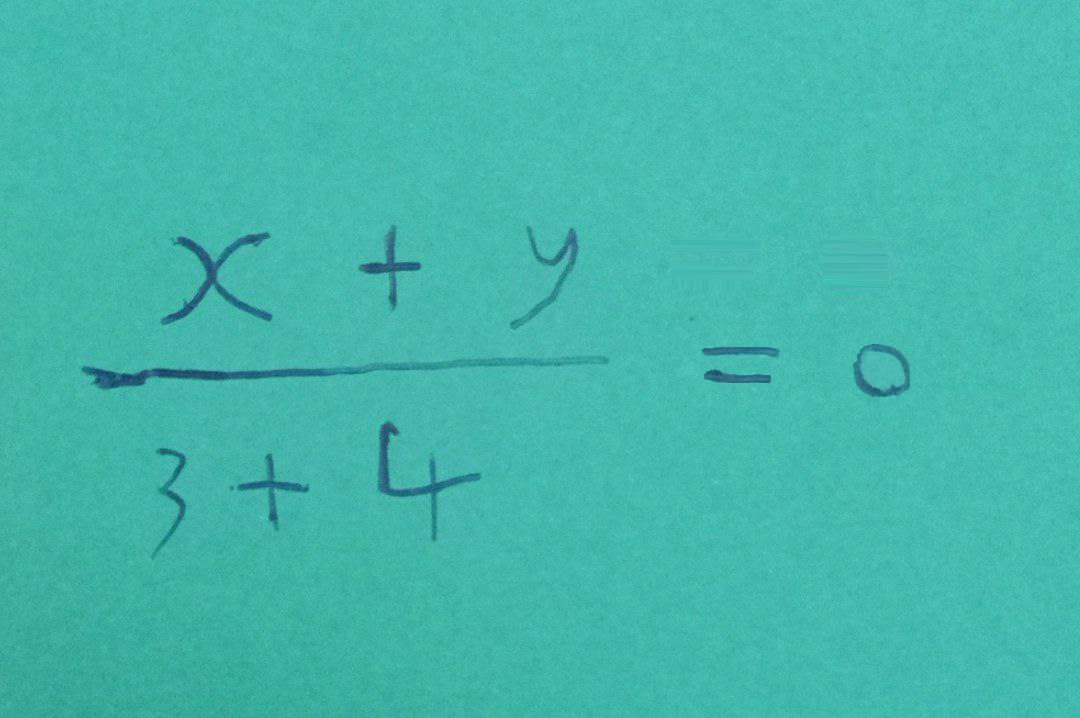 x + y
3 + 4 = 0